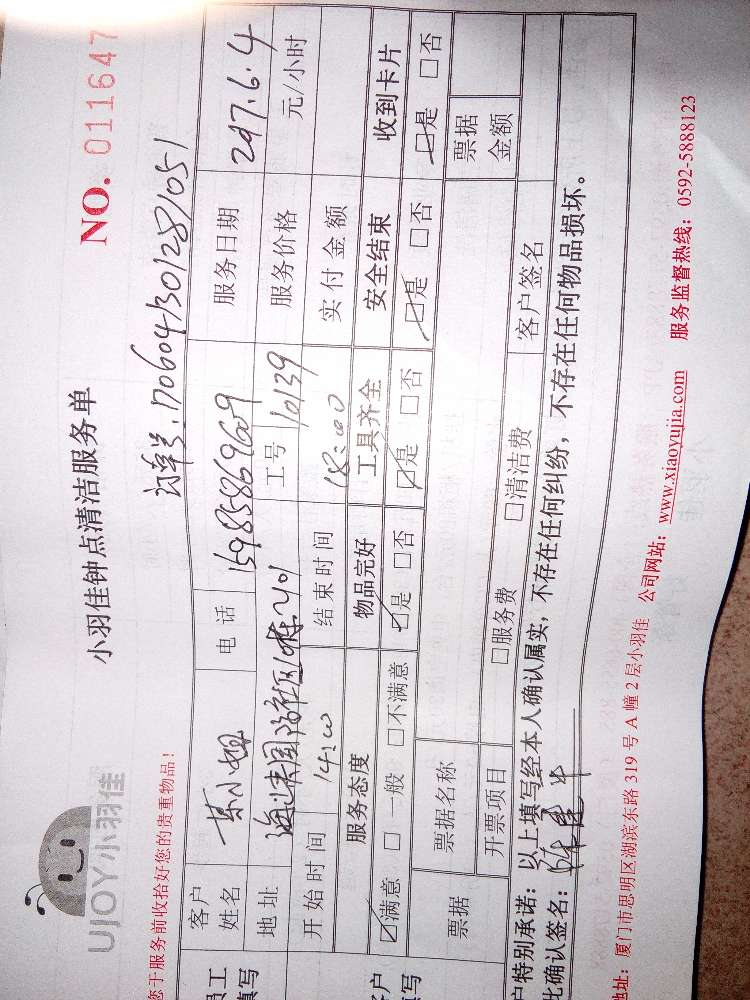 UJOY小羽佳
小羽佳钟点清洁服务单
NO. 011647
您于服务前收拾好您的贵重物品！
订单号：170604130128/051
员工
填写
客户
姓名
小姐
电话
15985869609
服务日期
2017.6.4
地址
201
工号
10139
服务价格
元/小时
开始时间
14:00
结束时间
18:00
实付金额
客户
填写
服务态度
物品完好
工具齐全
安全结束
收到卡片
☑满意 □ 一般 □不满意
☑是 □否
☑是 □否
☑是 □否
☑是 □否
票据
票据名称
票据
金额
开票项目
□服务费
□清洁费
客户签名
户特别承诺：以上填写经本人确认属实，不存在任何纠纷，不存在任何物品损坏。
此确认签名：
地址：厦门市思明区湖滨东路 319 号 A 幢 2 层小羽佳 公司网站：www.xiaoyujia.com 服务监督热线：0592-5888123